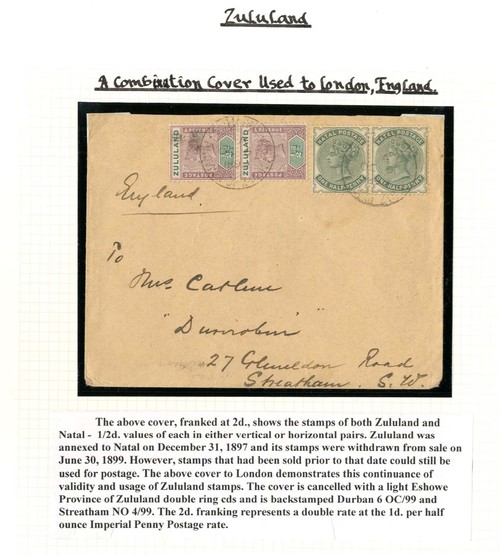 Zululand
A Combination Cover Used to London, England.
ZULULAND
POSTAGE & REVENUE
ZULULAND
POSTAGE & REVENUE
NATAL POSTAGE
ONE HALF-PENNY
NATAL POSTAGE
ONE HALF-PENNY
England.
To
"Dunrobin"
27 Road
Streatham. S.W.
The above cover, franked at 2d., shows the stamps of both Zululand and
Natal - 1/2d. values of each in either vertical or horizontal pairs. Zululand was
annexed to Natal on December 31, 1897 and its stamps were withdrawn from sale on
June 30, 1899. However, stamps that had been sold prior to that date could still be
used for postage. The above cover to London demonstrates this continuance of
validity and usage of Zululand stamps. The cover is cancelled with a light Eshowe
Province of Zululand double ring cds and is backstamped Durban 6 OC/99 and
Streatham NO 4/99. The 2d. franking represents a double rate at the 1d. per half
ounce Imperial Penny Postage rate.